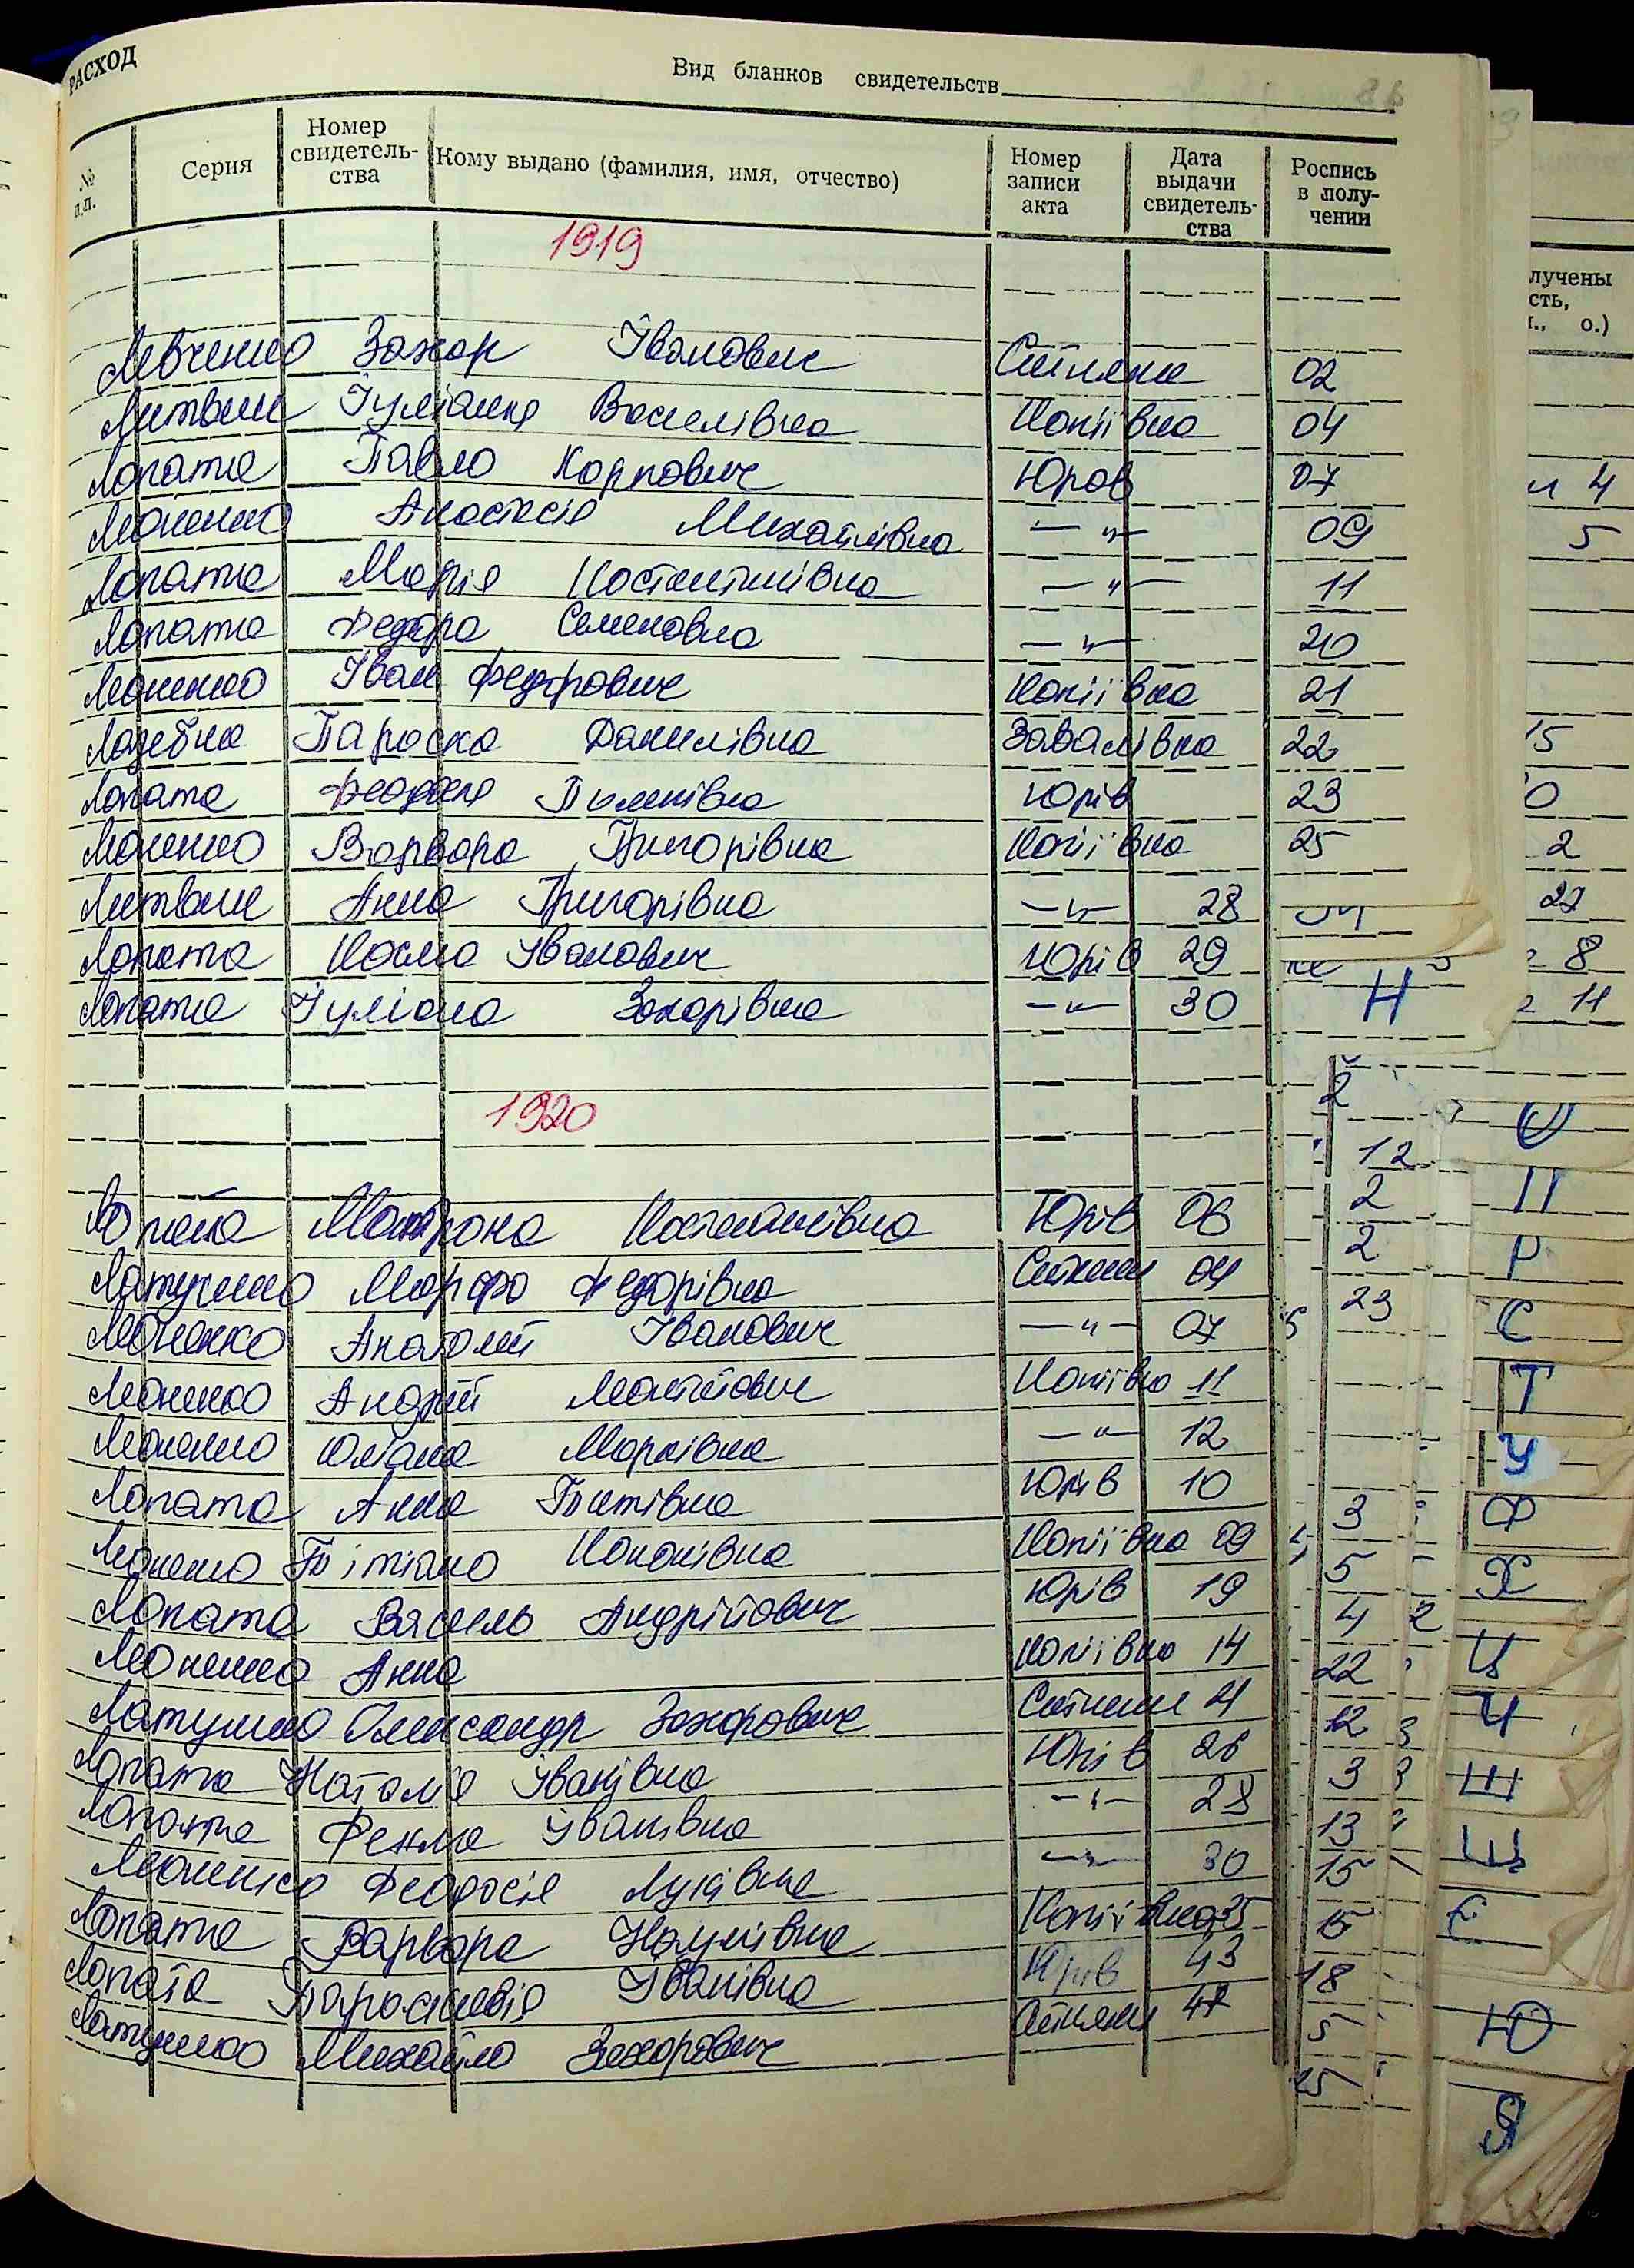 РАСХОД
Вид бланков свидетельств
№ п.п.
Серия
Номер свидетель-ства
Кому выдано (фамилия, имя, отчество)
Номер записи акта
Дата выдачи свидетель-ства
Роспись в полу-чении
1919
Левченко Захар Іванович Ситняки 02
Литвин Іуліанія Василівна Копіївка 04
Лопата Павло Карпович Юров 07
Леоненко Анастасія Михайлівна —"— 09
Лопата Марія Костантинівна —"— 11
Лопата Федора Семеновна —"— 20
Леоненко Іван Федорович Копіївка 21
Лазебна Параска Данилівна Завалівка 22
Лопата Пилипівна Юрів 23
Леоненко Варвара Григорівна Копіївка 25
Литвин Анна Григорівна —"— 28
Лопата Косма Іванович Юрів 29
Лопата Іуліана Захарівна —"— 30
1920
Лопата Мотрона Костантинівна Юрів 06
Латушко Марфа Федорівна Ситняки 04
Леоненко Анатолій Іванович —"— 07
Леоненко Андрій Копіївка 11
Леоненко Юліана Марківна —"— 12
Лопата Анна Титівна Юрів 10
Леоненко Кононівна Копіївка 09
Лопата Василь Андрійович Юрів 19
Леоненко Анна Копіївка 14
Латушко Олександр Захарович Ситняки 21
Лопата Наталія Іванівна Юрів 26
Лопата Іванівна —"— 28
Леоненко Феодосія Луківна —"— 30
Лопата Варвара Наумівна Копіївка 35
Лопата Параскевія Іванівна Юрів 43
Латушко Михайло Захарович Ситняки 47
лучены
сть,
о.)
4
5
15
0
2
27
8
11
Н
2
12
2
2
23
3
5
4 2
22
12 3
3
13
15
15
18
5
25
О
П
Р
С
Т
У
Ф
Х
Ц
Ч
Ш
Щ
Є
Ю
Я